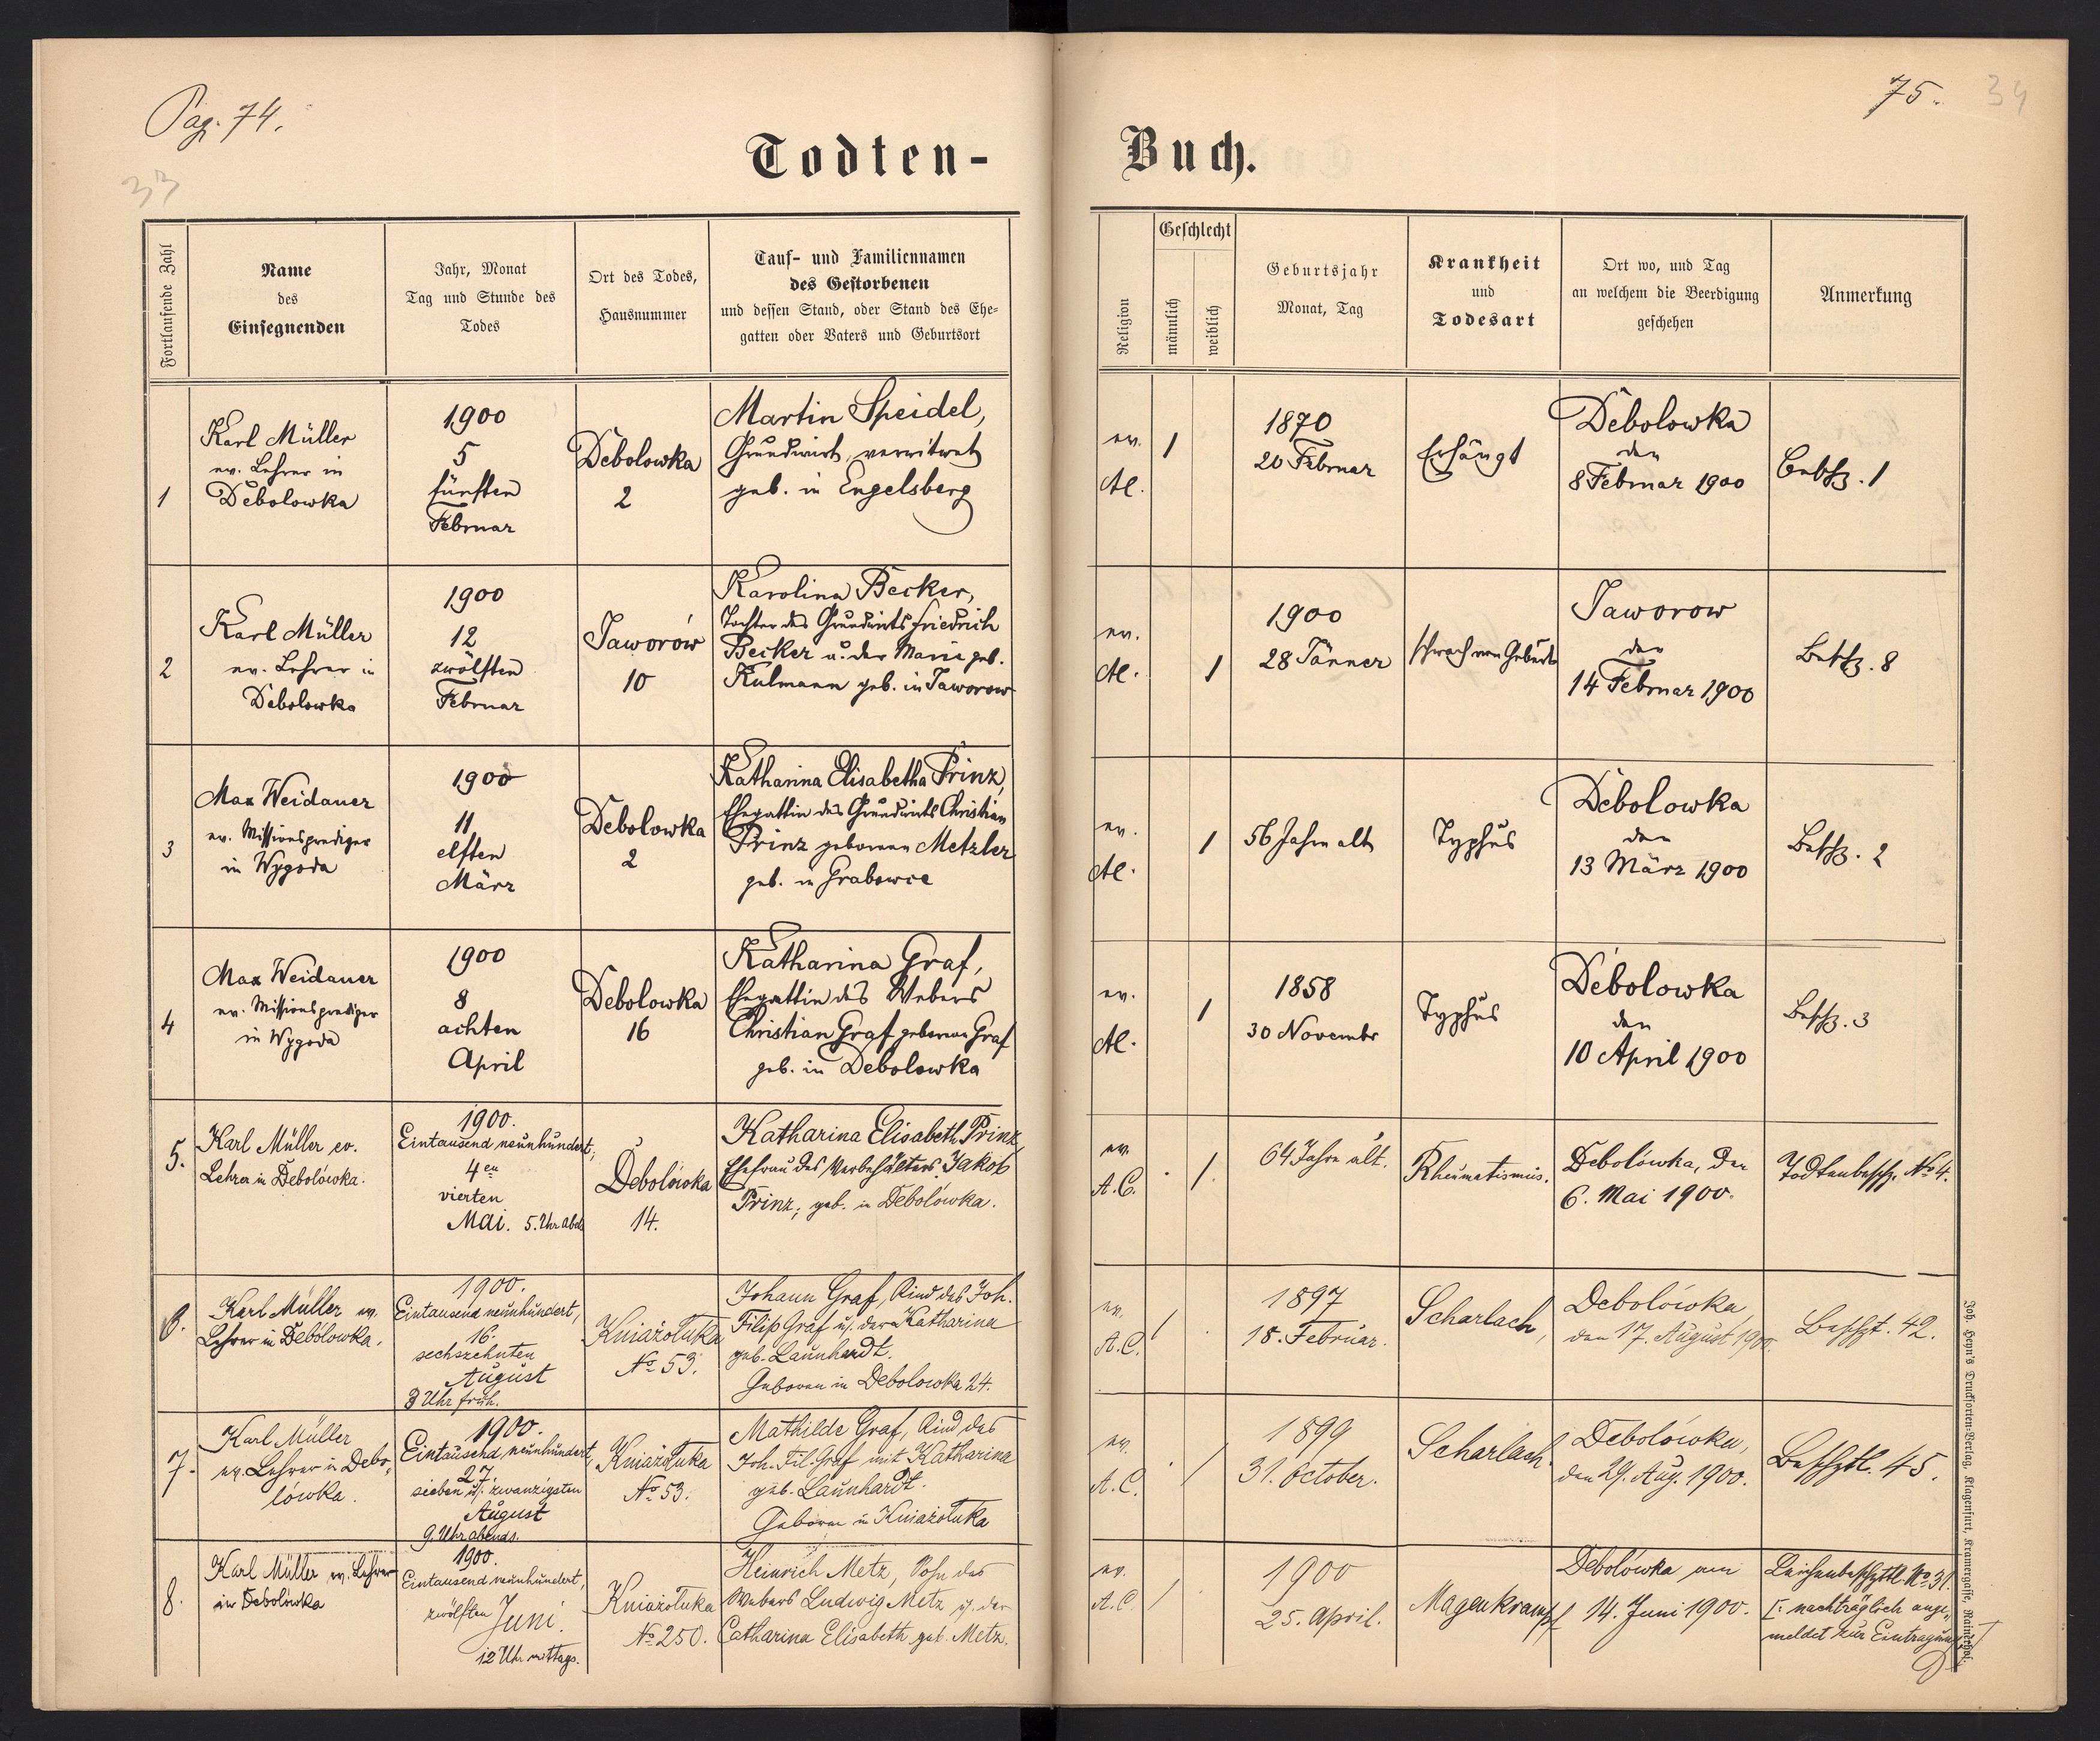 Pag. 74.
33
75.
34
Todten-
Buch.
Fortlaufende Zahl
Name
des
Einsegnenden
Jahr, Monat
Tag und Stunde des
Todes
Ort des Todes,
Hausnummer
Tauf- und Familiennamen
des Gestorbenen
und dessen Stand, oder Stand des Ehe-
gatten oder Vaters und Geburtsort
Religion
Geschlecht
männlich
weiblich
Geburtsjahr
Monat, Tag
Krankheit
und
Todesart
Ort wo, und Tag
an welchem die Beerdigung
geschehen
Anmerkung
1
Karl Müller
ev. Lehrer in
Debolowka
1900
5
fünften
Februar
Debolowka
2
Martin Speidel,
Grundwirt, verwitwet
geb. in Engelsberg
ev.
AC.
1
1870
20 Februar
Erhängt
Debolowka
den
8 Februar 1900
Bebsch. 1
2
Karl Müller
ev. Lehrer in
Debolowka
1900
12
zwölften
Februar
Jaworów
10
Karolina Becker,
Tochter des Grundwirts Friedrich
Becker u. der Marie geb.
Kulmann geb. in Jaworow
ev.
AC.
1
1900
28 Jänner
schwach von Geburt
Jaworow
den
14 Februar 1900
Bebsch. 8
3
Max Weidauer
ev. Missionsprediger
in Wygoda
1900
11
elften
März
Debolowka
2
Katharina Elisabetha Prinz,
Ehegattin des Grundwirts Christian
Prinz geborenen Metzler
geb. in Grabowce
ev.
AC.
1
56 Jahre alt
Typhus
Debolowka
den
13 März 1900
Bebsch. 2
4
Max Weidauer
ev. Missionsprediger
in Wygoda
1900
8
achten
April
Debolowka
16
Katharina Graf,
Ehegattin des Webers
Christian Graf geborene Graf
geb. in Debolowka
ev.
AC.
1
1858
30 November
Typhus
Debolowka
den
10 April 1900
Besch. 3
5.
Karl Müller ev.
Lehrer in Debolówka.
1900.
Eintausend neunhundert,
4en
vierten
Mai. 5. Uhr abds
Debolówka
14.
Katharina Elisabeth Prinz,
Ehefrau des Jakob
Prinz, geb. in Debolówka.
ev.
A.C.
. 1.
64 Jahre alt.
Rheumatismus.
Debolówka, den
6. Mai 1900.
Todtenbesch. No 4.
6.
Karl Müller ev.
Lehrer in Debólowka.
1900.
Eintausend neunhundert,
16.
sechszehnten
August
3 Uhr früh.
Kniażołuka
No 53.
Johann Graf, Kind des Joh.
Filip Graf u. der Katharina
geb. Launhardt.
Geboren in Debolowka 24.
ev.
A.C.
1 .
1897
18. Februar.
Scharlach,
Debolówka,
den 17. August 1900.
Beschgt. 42.
7.
Karl Müller
ev. Lehrer in Debo-
lówka.
1900.
Eintausend neunhundert,
27.
sieben u. zwanzigsten
August
9. Uhr abends.
Kniażołuka
No 53.
Mathilde Graf, Kind des
Joh. Fil. Graf mit Katharina
geb. Launhardt.
Geboren in Kniażołuka
ev.
A.C.
. 1
1899
31. October.
Scharlach.
Debolówka,
den 29. Aug. 1900.
Beschgtl. 45.
8.
Karl Müller ev. Lehrer
in Debolówka
1900.
Eintausend neunhundert,
zwölften Juni.
12 Uhr mittags.
Kniażołuka
No 250.
Heinrich Metz, Sohn des
Webers Ludwig Metz u. der
Catharina Elisabeth geb. Metz.
ev.
A.C.
1
1900
25. April.
Magenkrampf
Debolówka, am
14. Juni 1900.
No 31.
[: nachträglich ange-
meldet zur Eintragung :]
Joh. Heyn's Drucksorten-Verlag, Klagenfurt, Kramergasse, Rainerhof.